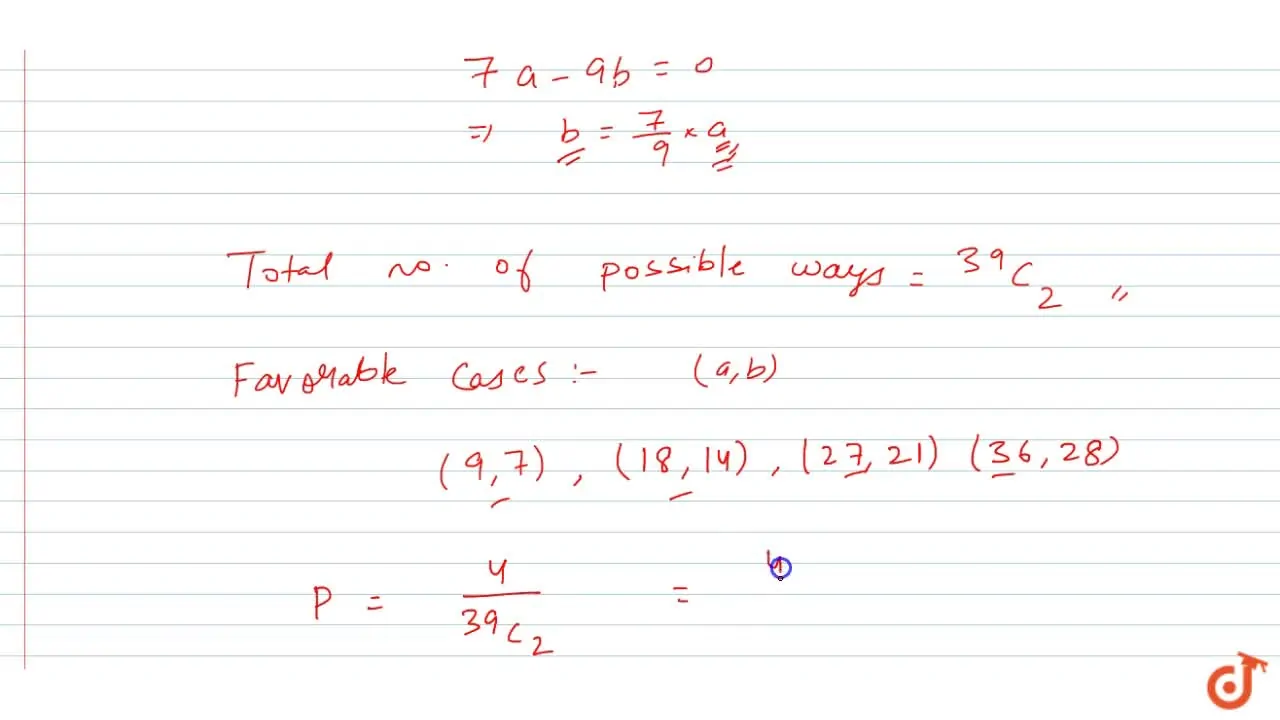 7 a - 9b = 0
⇒ b = 7/9 × a
Total no. of possible ways = ³⁹C₂ "
Favorable cases :- (a,b)
(9,7), (18,14), (27,21) (36,28)
P = 4/³⁹C₂ = 4